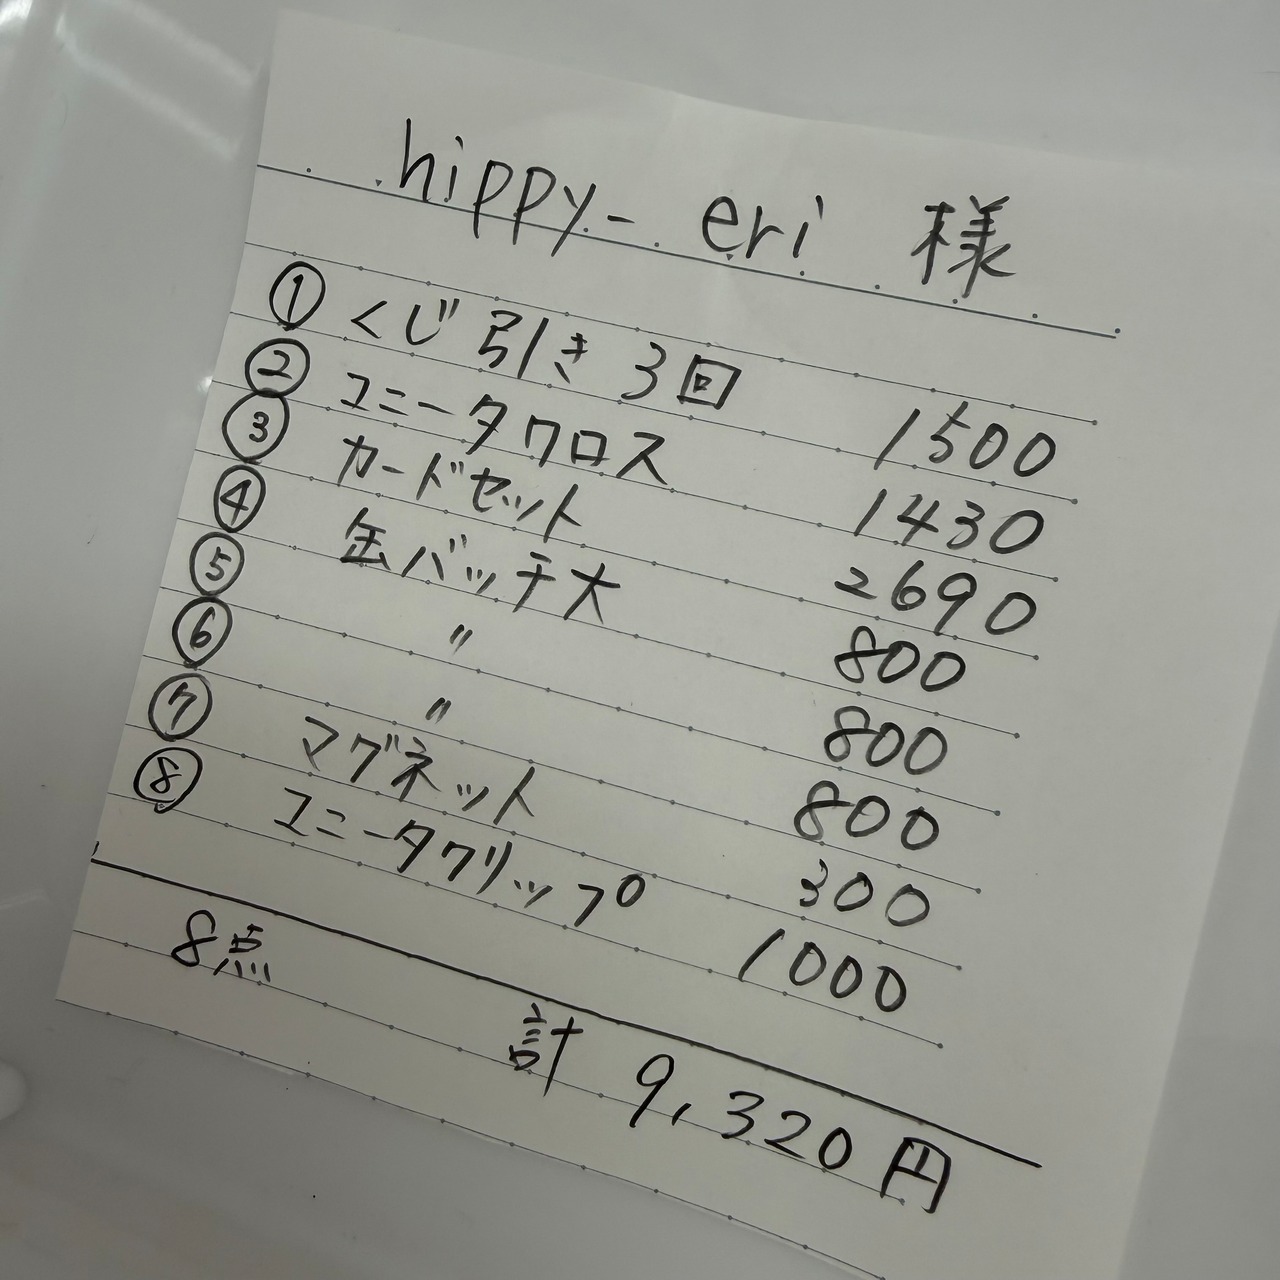 hippy-eri 様
① くじ引き 3回 1500
② ユニータクロス 1430
③ カードセット 2690
④ 缶バッチ大 800
⑤ 〃 800
⑥ 〃 800
⑦ マグネット 300
⑧ ユニータクリップ 1000
8点
計 9,320円